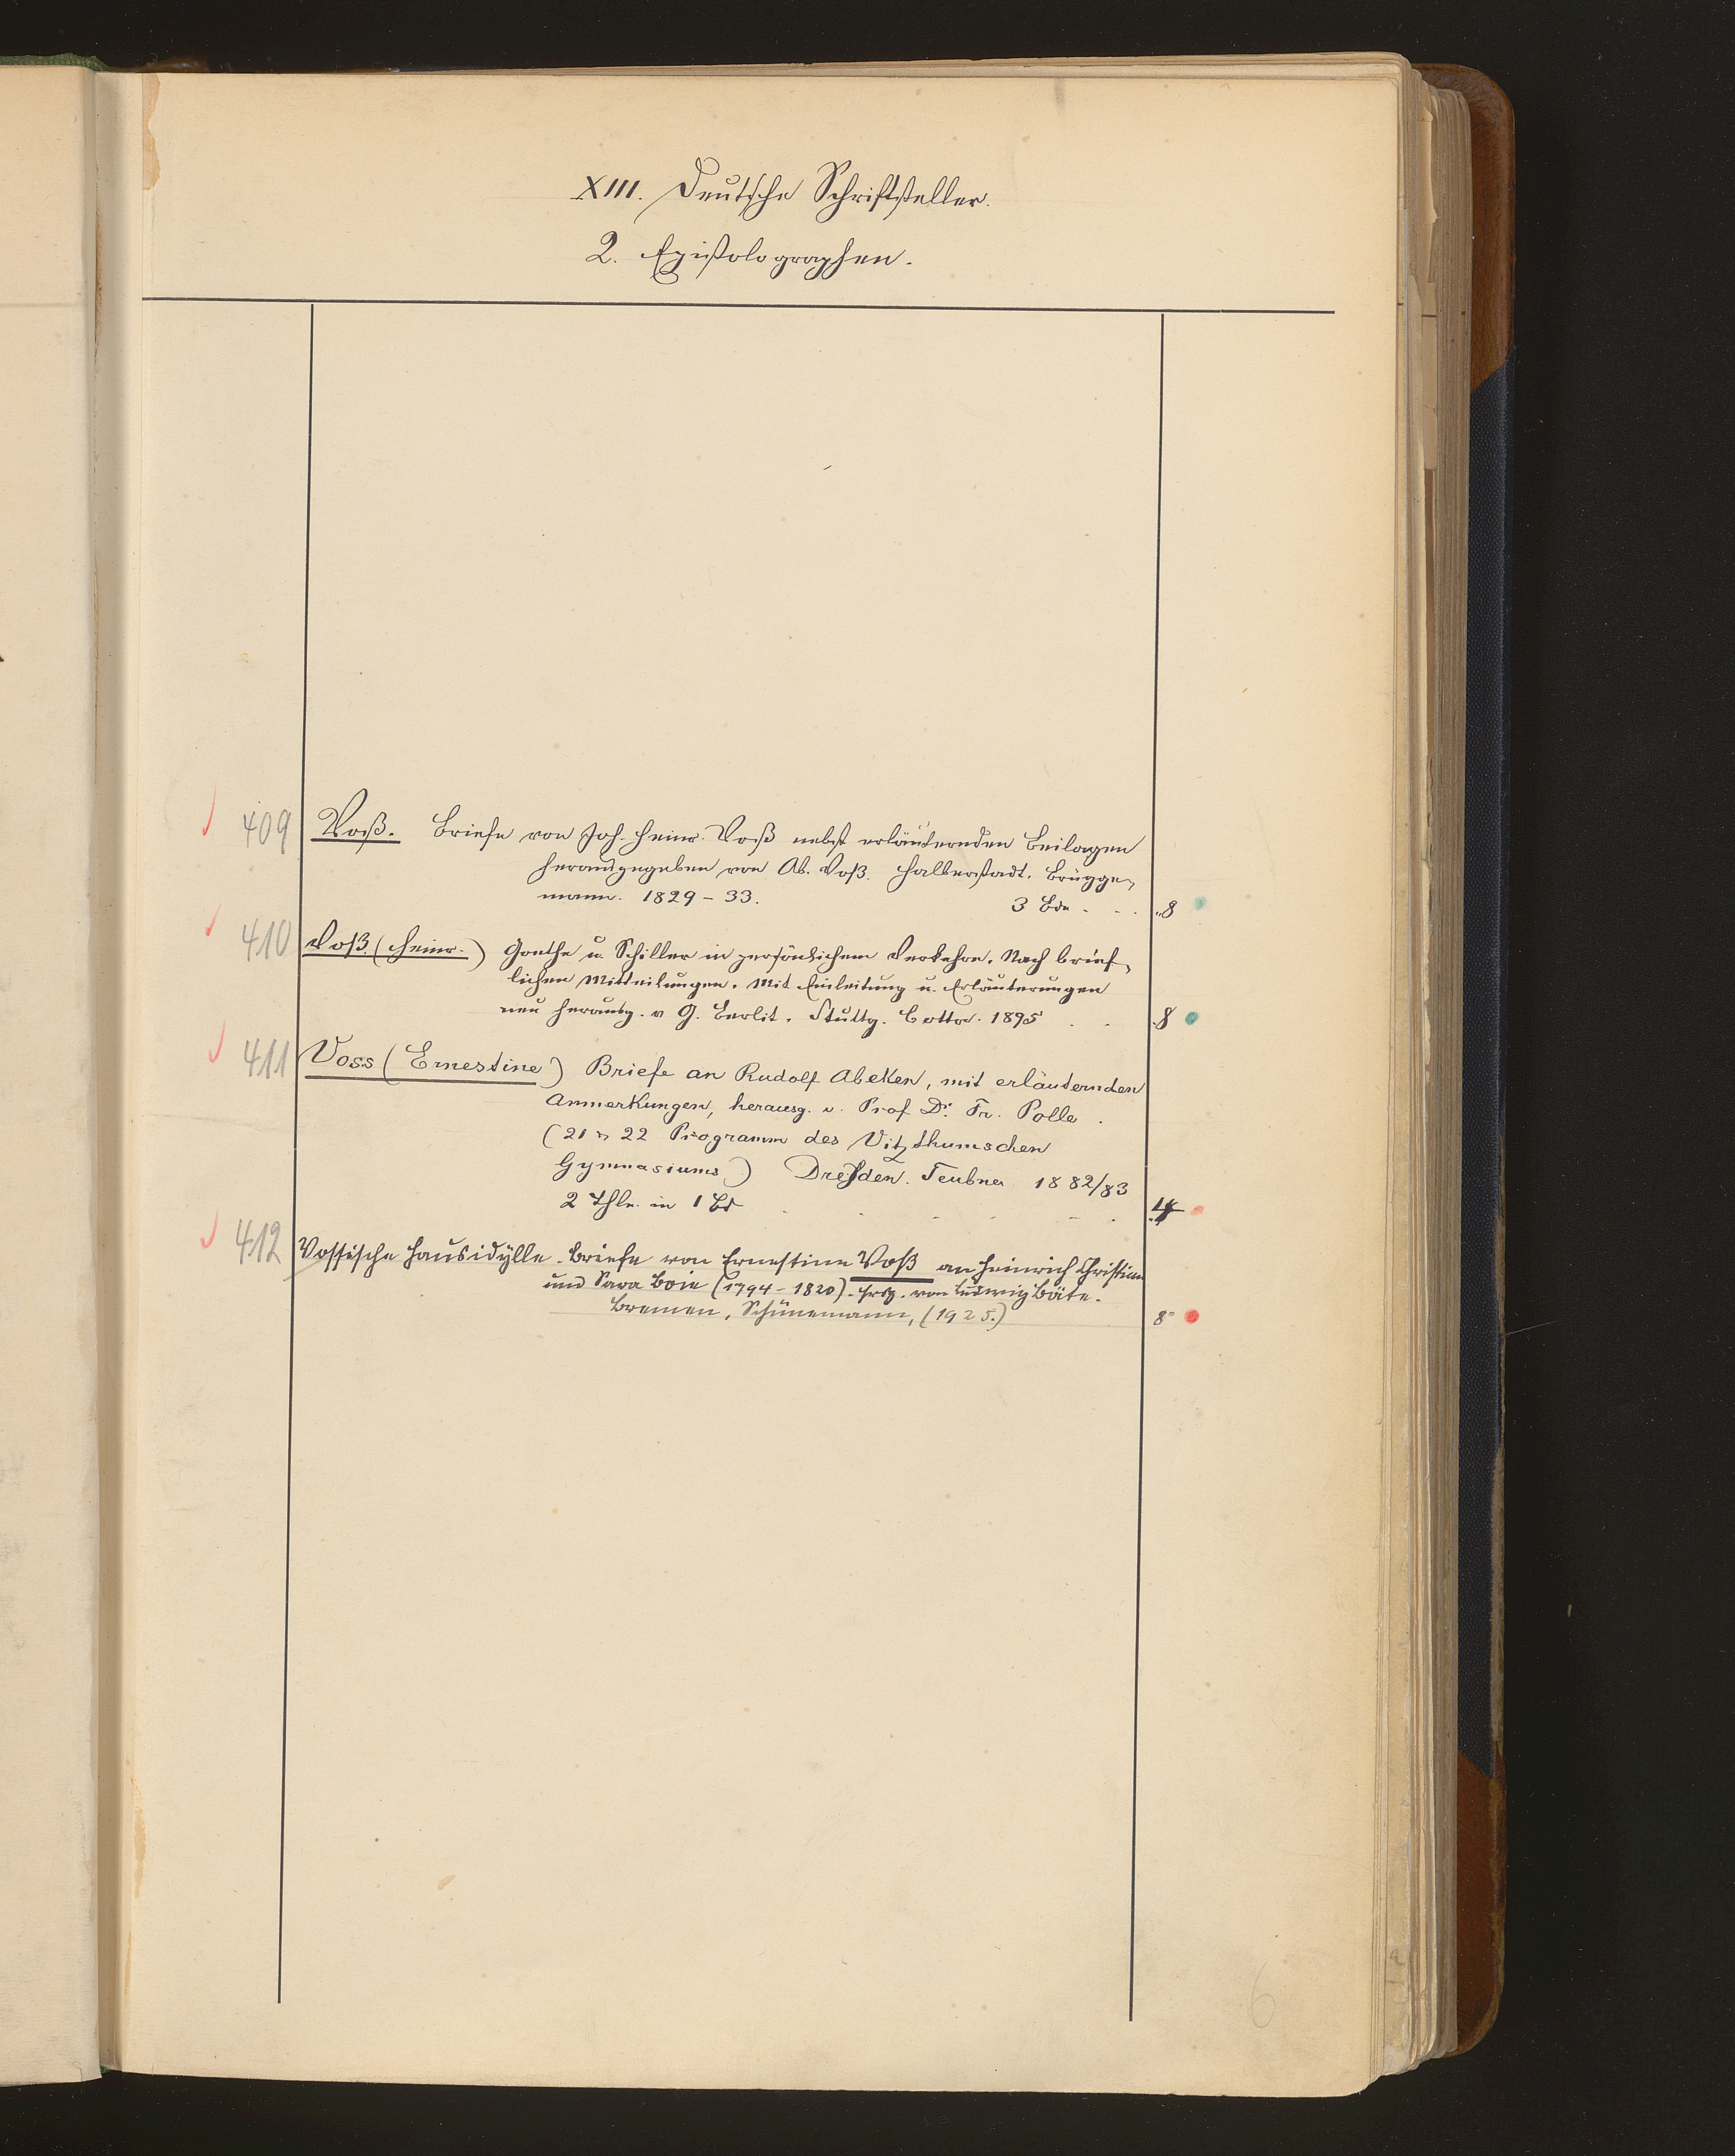 XIII. Deutsche Schriftsteller.
2. Epistolographen.
409 Voß. Briefe von Joh. Heinr. Voß nebst erläuternden Beilagen
herausgegeben von Ab. Voß. Halberstadt. Brügge-
mann. 1829-33. 3 Bde . . . "8
410 Voß (Heinr.) Goethe u. Schiller in persönlichem Verkehre. Nach brief-
lichen Mitteilungen. Mit Einleitung u. Erläuterungen
neu herausg. v G. Berlit. Stuttg. Cotta. 1895 . . 8
411 Voss (Ernestine) Briefe an Rudolf Abeken, mit erläuternden
Anmerkungen, herausg. v. Prof Dr. Fr. Polle .
(21 22 Programm des Vitzthumschen
Gymnasiums) Dresden. Teubner 1882/83
2 Thle. in 1 Bd . . . . . . 4
412 Vossische Hausidylle. Briefe von Ernestine Voß an Heinrich Christian
und Sara Boie (1794-1820). Hrsg. von Ludwig Bäte.
Bremen, Schünemann, (1925.) 8°
6